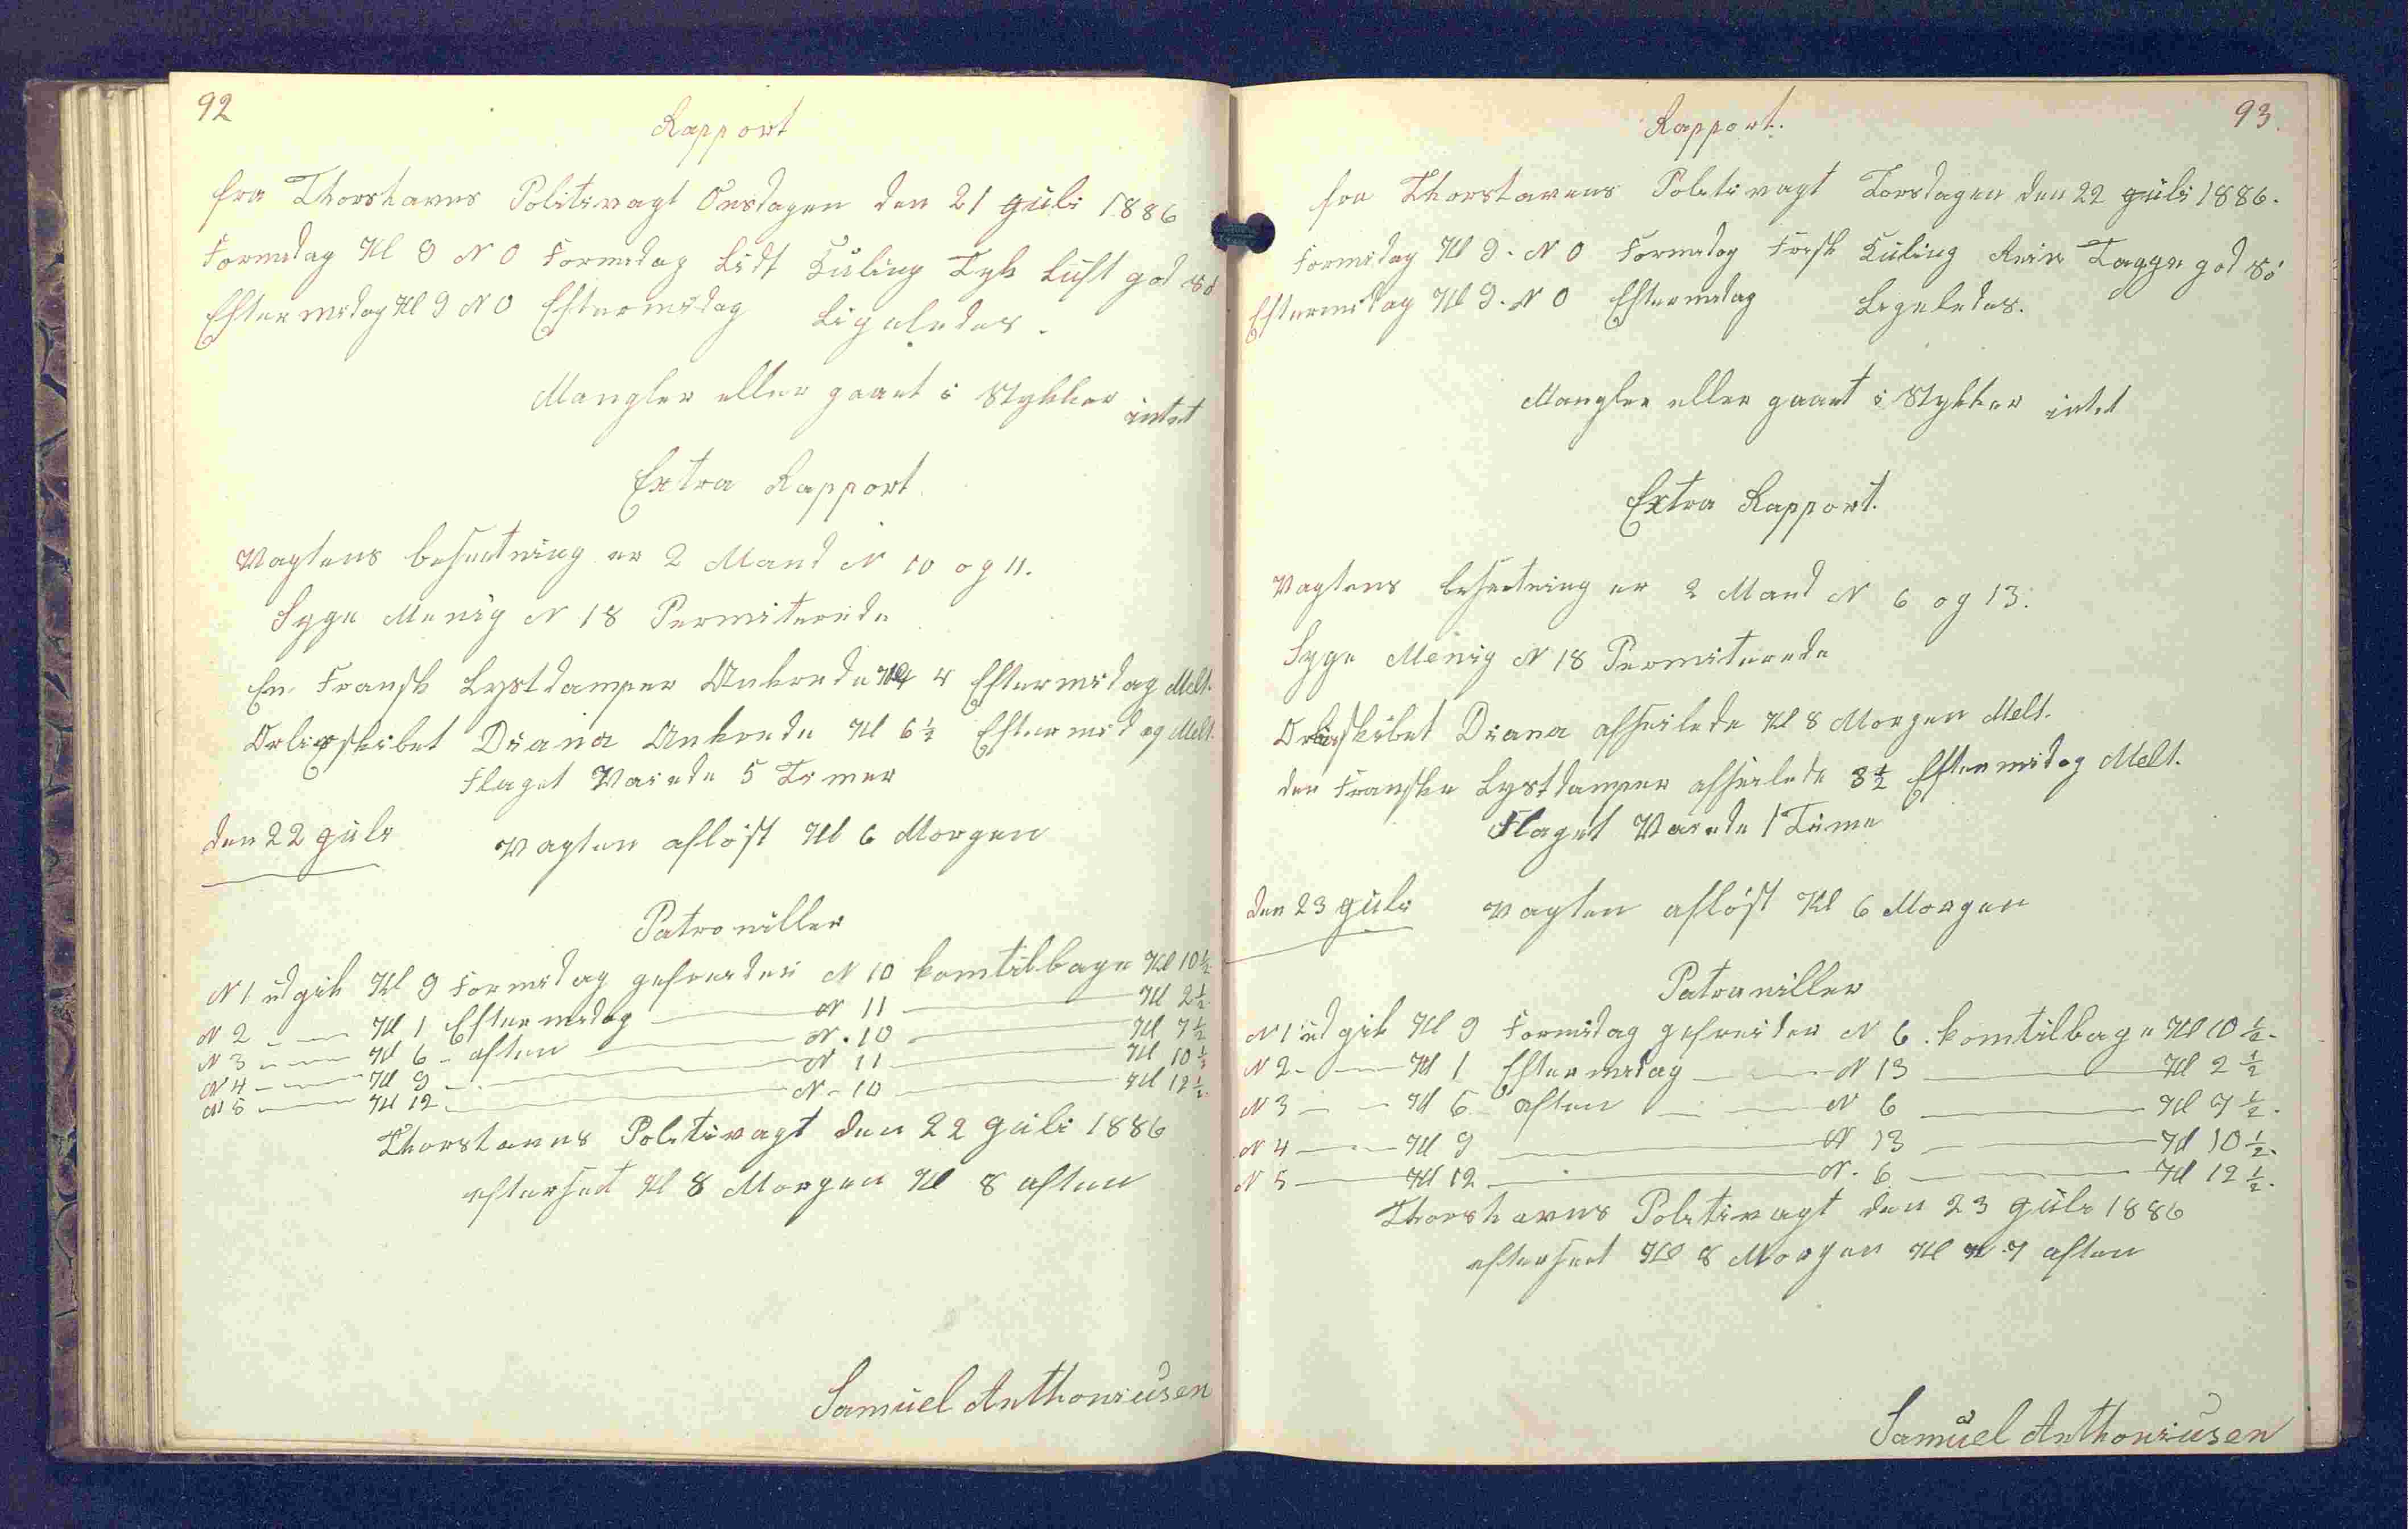 92
Rapport
fra Thorshavns Politivagt Onsdagen den 21 Juli 1886
Formidag Kl 9 N O Formidag Lidt Kuling Tyk Luft god Sö
Eftermidag Kl 9 N O Eftermidag Ligeledes.
Mangler eller gaaet i Stykker intet
Extra Rapport.
Vagtens besætning er 2 Mand N 10 og 11.
Syge Menig N 18 Permiterede
En Fransk Lystdamper Ankrede Kl 4 Eftermidag Melt.
Orligsskibet Diana Ankrede Kl 6½ Eftermidag Melt.
Flaget Vaiede 5 Timer
den 22 Juli Vagten aflöst Kl 6 Morgen
Patroviller
N 1 udgik Kl 9 Formidag gefreider N 10 komtilbage Kl 10½
N 2 — — Kl 1 Eftermidag — N 11 — Kl 2½
N 3 — — Kl 6 - aften — N. 10 — Kl 7½
N 4 — — Kl 9 — N 11 — Kl 10½
N 5 — Kl 12 — N - 10 — Kl 12½.
Thorshavns Politivagt den 22 Juli 1886
efterset Kl 8 Morgen Kl 8 aften
Samuel Anthoniusen
93.
Rapport.
fra Thorshavens Politivagt Torsdagen den 22 Juli 1886.
Formidag Kl 9. N O Formidag Frisk Kuling Rein Tagge god Sö
Eftermidag Kl 9. N O Eftermidag Ligeledes.
Mangler eller gaaet i Stykker intet
Extra Rapport.
Vagtens besætning er 2 Mand N 6 og 13.
Syge Menig N 18 Permiterede
Orligsskibet Diana afseilede Kl 8 Morgen Melt.
den Franske Lystdamper afseilede 3½ Eftermidag Melt.
Flaget Vaiede 1 Time
den 23 Juli Vagten aflöst Kl 6 Morgen
Patroviller
N 1 udgik Kl 9 Formidag gefreider N 6. komtilbage Kl 10½.
N 2 - — Kl 1 Eftermidag — N 13 — Kl 2½
N 3 — — Kl 6 aften — N 6 — Kl 7½.
N 4 — — Kl 9 — N 13 — Kl 10½.
N 5 — Kl 12 — N. 6 — Kl 12½.
Thorshavns Politivagt den 23 Juli 1886
efterset Kl 8 Morgen Kl 7 aften
Samuel Anthoniusen